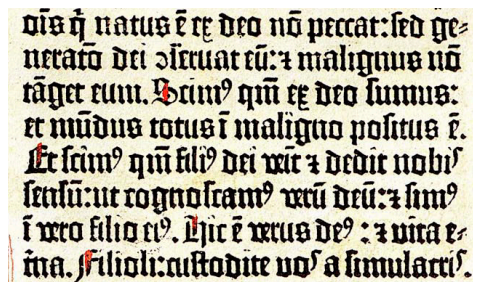 oīs q̄ natus ē ex deo nō peccat: sed ge⸗
neratō dei ꝯseruat eū: ⁊ malignus nō
tāget eum. Scimꝰ qm̄ ex deo sumus:
et mūdus totus ī maligno positus ē.
Et scimꝰ qm̄ filiꝰ dei veīt ⁊ dedit nobis
sensū: ut cognoscamꝰ verū deū: ⁊ simꝰ
ī vero filio eiꝰ. Hic ē verus deꝰ : ⁊ vita e⸗
t̄na. Filioli: custodite vos a simulacris.